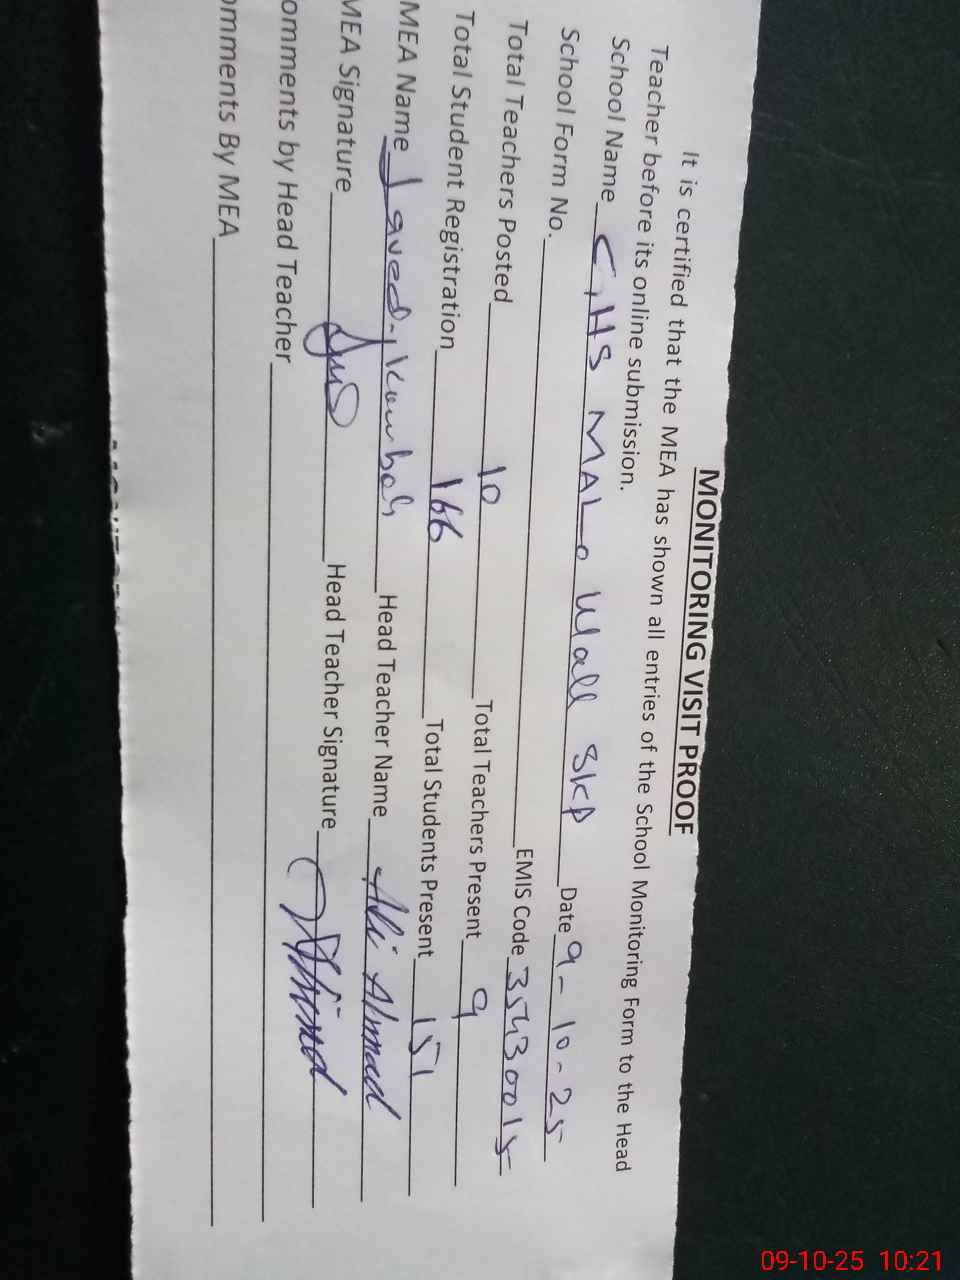 MONITORING VISIT PROOF
It is certified that the MEA has shown all entries of the School Monitoring Form to the Head
Teacher before its online submission.
School Name GHS MALO Wall SKP Date 9-10-25
School Form No. EMIS Code 35430015
Total Teachers Posted 10 Total Teachers Present 9
Total Student Registration 166 Total Students Present 151
MEA Name Javed Head Teacher Name Ali Ahmad
MEA Signature Head Teacher Signature Ahmad
omments by Head Teacher
omments By MEA
09-10-25 10:21